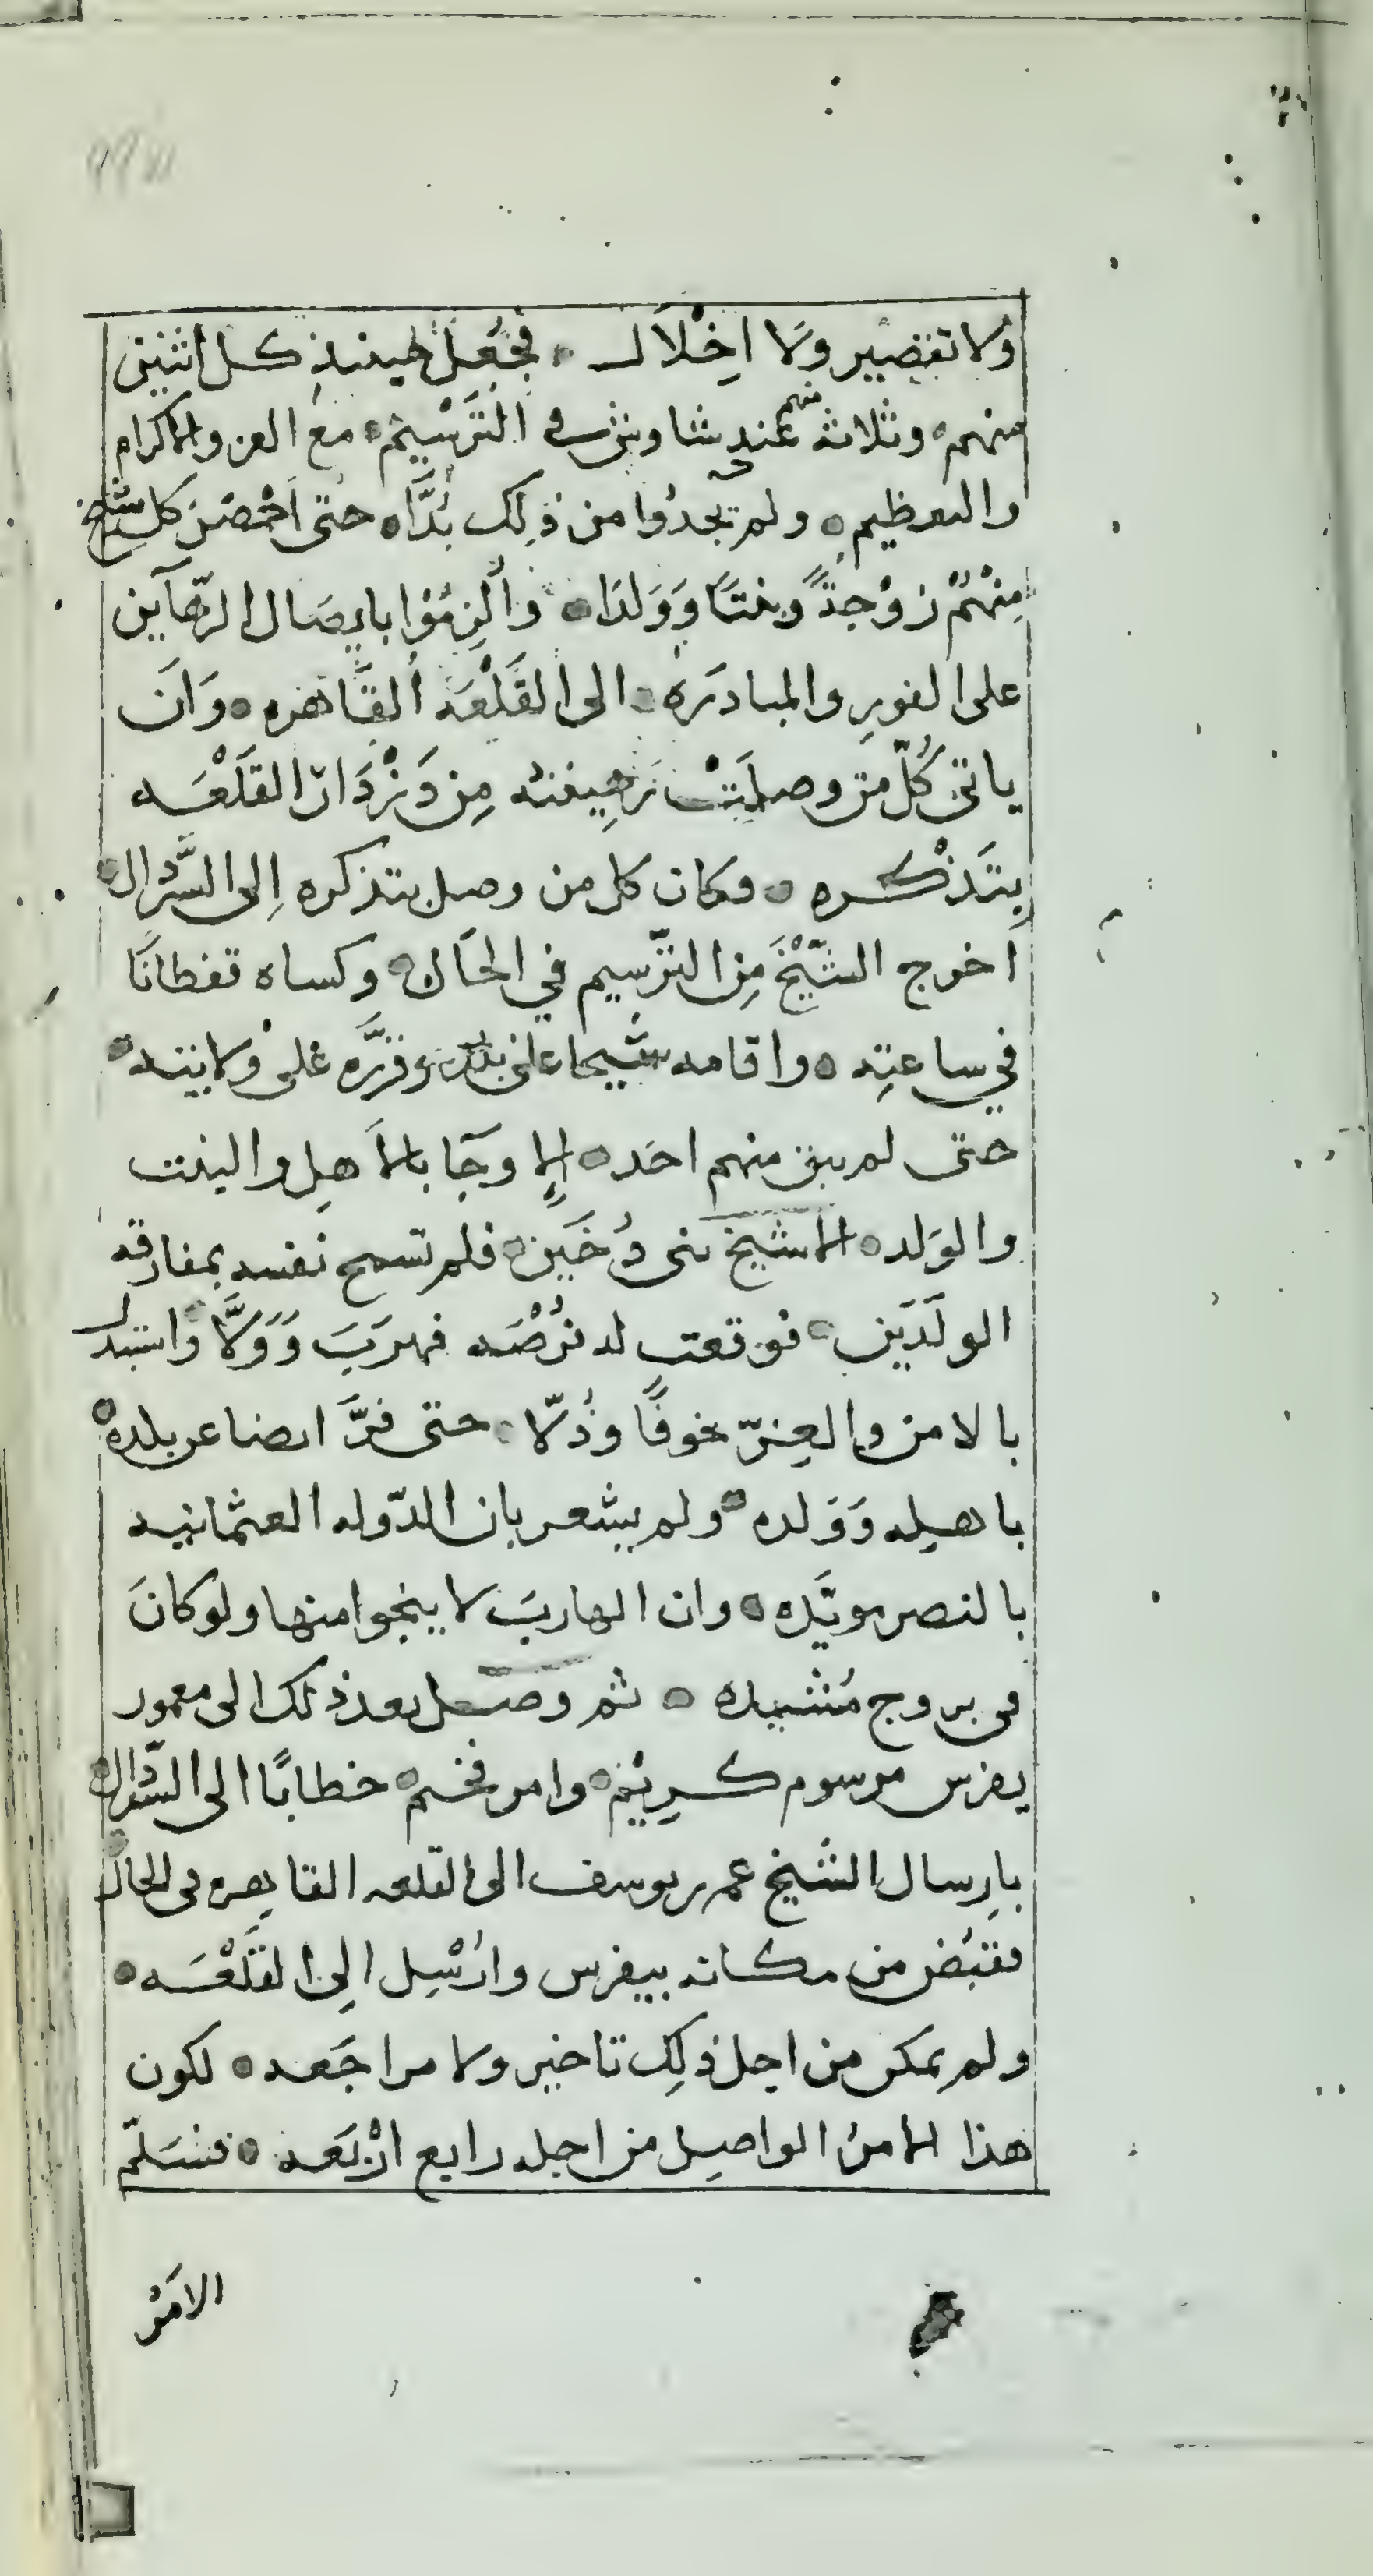 ولا تقصير ولا اِخْلَال فجُعِل حينئذٍ كل اثنين
منهم وثلاثة منهم عند شاوش في التَرْسِيْم مع العز والاكرام
والتعظيم ولم يجدُوا من ذلِك بُدَّا حتى اَحْضَرَ كل شيخ
مِنْهُمْ زَوْجةً وبنتًا وَوَلدَا وأُلزِمُوْا بايصَال الرّهاَين
على الفورِ والمبادَرة الى القَلْعَة القَاهره وَاَن
ياتىَ كُلّ مَن وصلَتْ رَهِينته مِن دَزْدَار القلَعْه
بِتَذْكره وكان كل من وصل بتذكره اِلى السَّرْدال
اَخرج الشّيْخَ مِن الترّسيم في الحَال وكساه قفطانًا
في ساعتِه واقامه شيخا على بلده وقرَّره على ولايته
حتى لم يبق منهم احَد اِلا وجَا بالاَهلِ والبنت
والوَلد الا شيخ بنى فلم تسمح نفسه بمفارقه
الولَدَين فوقعت له فُرْصَه فهرَبَ وَوَلَّا واستبدل
بالامن والعِزّ خوفًا وذُلّا حتى فرَّ ايضا عن بلده
باهلِه وَوَلده ولم يشعر بان الدّوله العثمانيه
بالنصر مويَّده وان الهاربَ لا ينجوا منها ولو كانَ
فى بروج مُشيده ثم وصَل بعد ذلك الى معمور
يفرس مرسوم كرِيْم وامر فخم خطابًا الى السّردال
بارِسال الشّيخ عمر بن يوسف الى القلعه القاهِره فى الحال
فقبُض من مكانه بيفرس واُرْسِل الى القَلْعَه
ولم يمكن من اجل ذلِك تاخير ولا مراجَعه لكون
هذا الامرُ الواصِل من اجله رابع ارْبَعه فسَلّم
الامْر